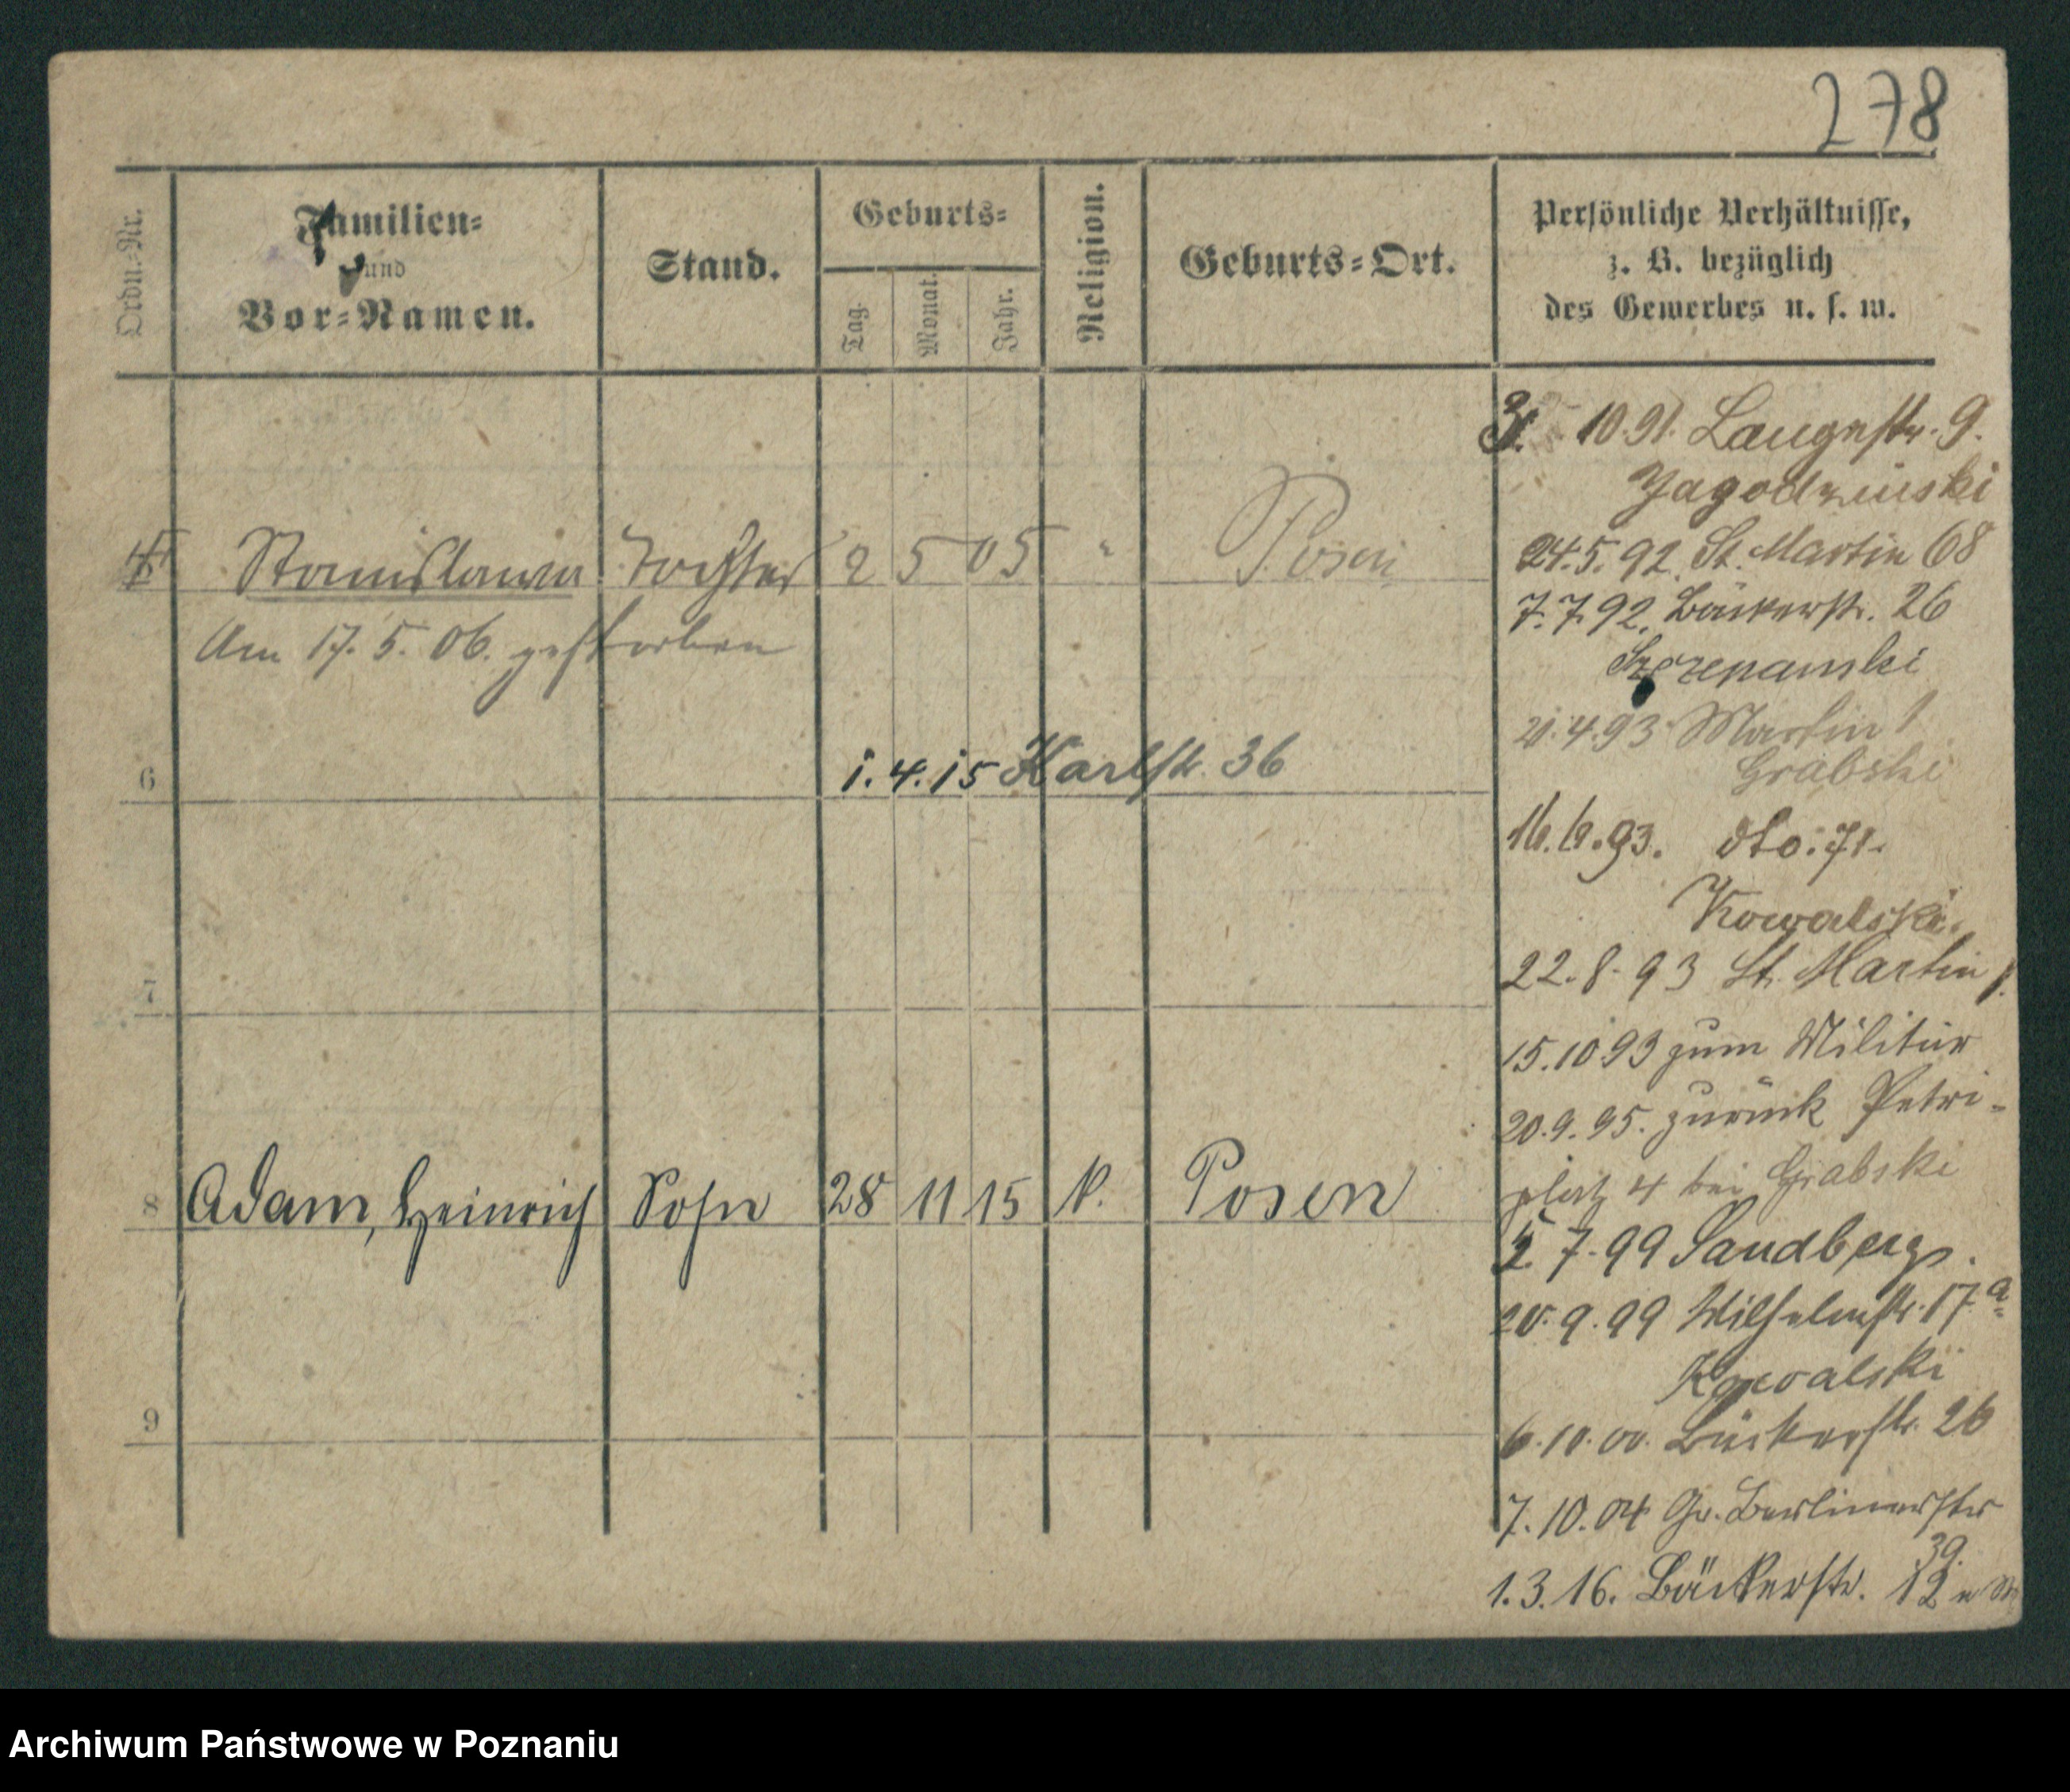 278
Ordn.-Nr.
Familien-
und
Vor-Namen.
Stand.
Geburts-
Tag.
Monat.
Jahr.
Religion.
Geburts-Ort.
Persönliche Verhältnisse,
z. B. bezüglich
des Gewerbes u. s. w.
10.91. Langestr. 9.
Jagodzinski
24.5.92. St. Martin 68
7.7.92. Bäckerstr. 26
Szczepanski
21.4.93 Martin 1
Grabski
16.6.93. dto. 71.
Kowalski.
22.8.93 St. Martin 1.
15.10 93 zum Militär
20.9.95. zurück Petri-
platz 4 bei Grabski
7.99 Sandberg
20.9.99 Wilhelmstr. 17a
Kowalski
6.10.00. Bäckerstr. 26
7.10.04 Gr. Berlinerstr
39.
1.3.16. Bäckerstr. 12
5 Stanislawa Tochter 2 5 05 " Posen
Am 17.5.06. gestorben
6
1.4.15 Karlstr. 36
7
8 Adam, Heinrich Sohn 28 11 15 k. Posen
9
Archiwum Państwowe w Poznaniu